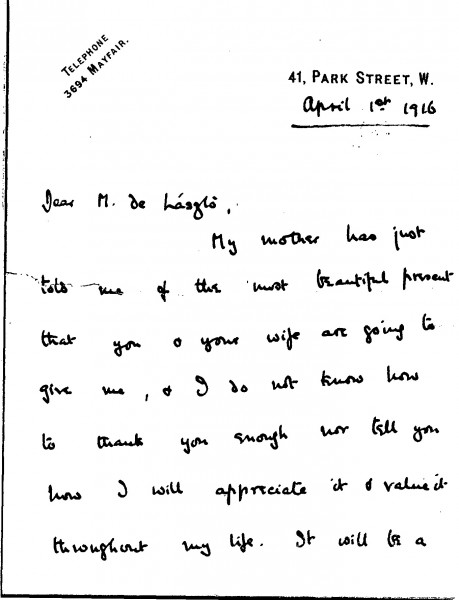 TELEPHONE
3694 MAYFAIR.
41, PARK STREET, W.
April 1st 1916
Dear M. de László,
My mother has just
told me of the most beautiful present
that you & your wife are going to
give me, & I do not know how
to thank you enough nor tell you
how I will appreciate it & value it
throughout my life. It will be a